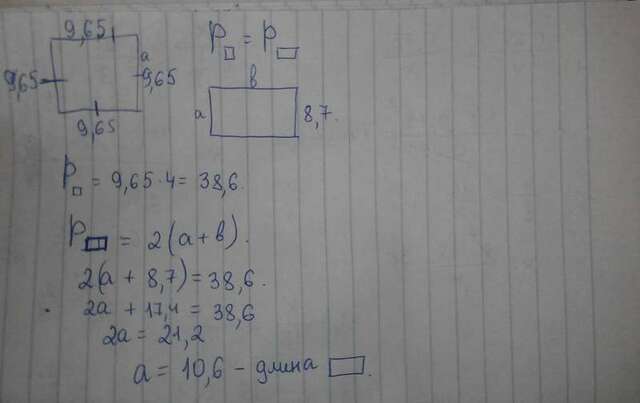 9,65
a
9,65
9,65
9,65
P□ = P▭
в
a
8,7.
P□ = 9,65·4 = 38,6.
P▭ = 2(a + в).
2(a + 8,7) = 38,6.
2a + 17,4 = 38,6
2a = 21,2
a = 10,6 – длина ▭.